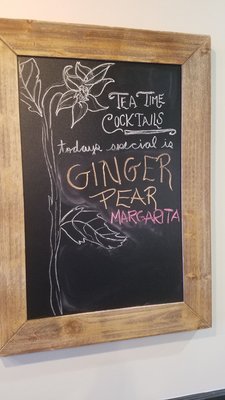 TEA TIME
COCKTAILS
today's special is
GINGER
PEAR
MARGARITA